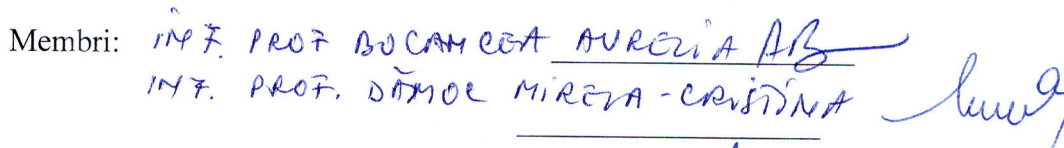 Membri: INF. PROF BUCAMCEA AURELIA AB
INF. PROF. DĂMOC MIRELA-CRISTINA